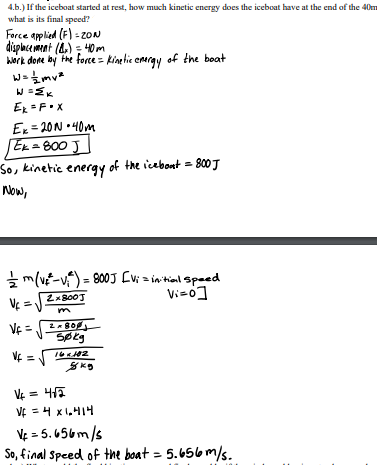 4.b.) If the iceboat started at rest, how much kinetic energy does the iceboat have at the end of the 40m
what is its final speed?
Force applied (F) = 20N
displacement (Δx) = 40m
Work done by the force = kinetic energy of the boat
W = 1/2 mv²
W = ΣK
EK = F • X
EK = 20N • 40m
EK = 800 J
So, kinetic energy of the iceboat = 800J
Now,
1/2 m(vf² - vi²) = 800J [Vi = initial speed
Vi = 0]
Vf = √(2 x 800J / m)
Vf = √(2 x 800J / 50kg)
Vf = √(16 x 102 / 5 kg)
Vf = 4√2
Vf = 4 x 1.414
Vf = 5.656 m/s
So, final speed of the boat = 5.656 m/s.